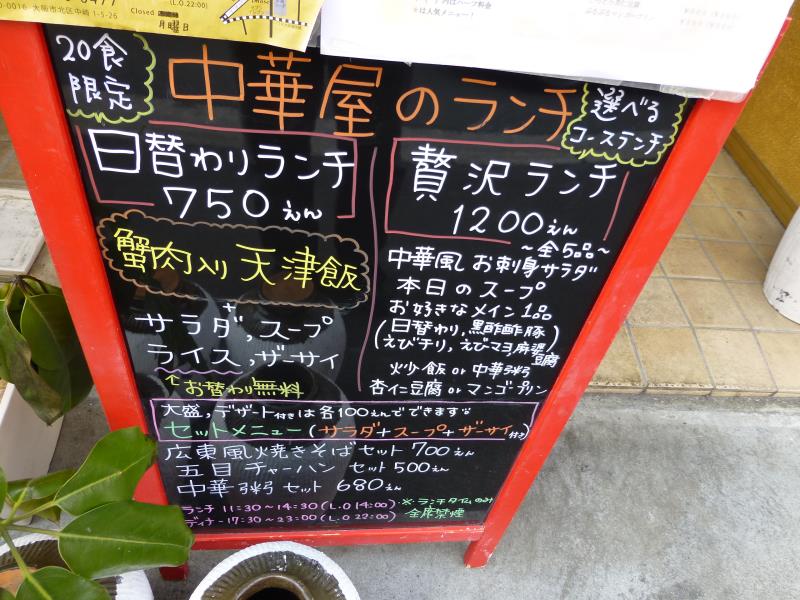 大阪市北区中崎 1-5-26
Closed 月曜日
(L.O 22:00)
は人気メニュー!
20食
限定
中華屋のランチ
選べる
コースランチ
日替わりランチ
750えん
蟹肉入り 天津飯
+
サラダ、スープ
ライス、ザーサイ
↑お替わり無料
贅沢ランチ
1200えん
~全5品~
中華風 お刺身サラダ
本日のスープ
お好きなメイン1品
(日替わり,黒酢酢豚
えびチリ,えびマヨ,麻婆豆腐)
炒飯 or 中華粥
杏仁豆腐 or マンゴープリン
大盛,デザート付きは各100えんでできます
セットメニュー(サラダ+スープ+ザーサイ付き)
広東風焼きそばセット 700えん
五目チャーハン セット 500えん
中華粥セット 680えん
ランチ 11:30~14:30(L.O 14:00)
※ランチタイムのみ
ディナー 17:30~23:00(L.O 22:00)
全席禁煙